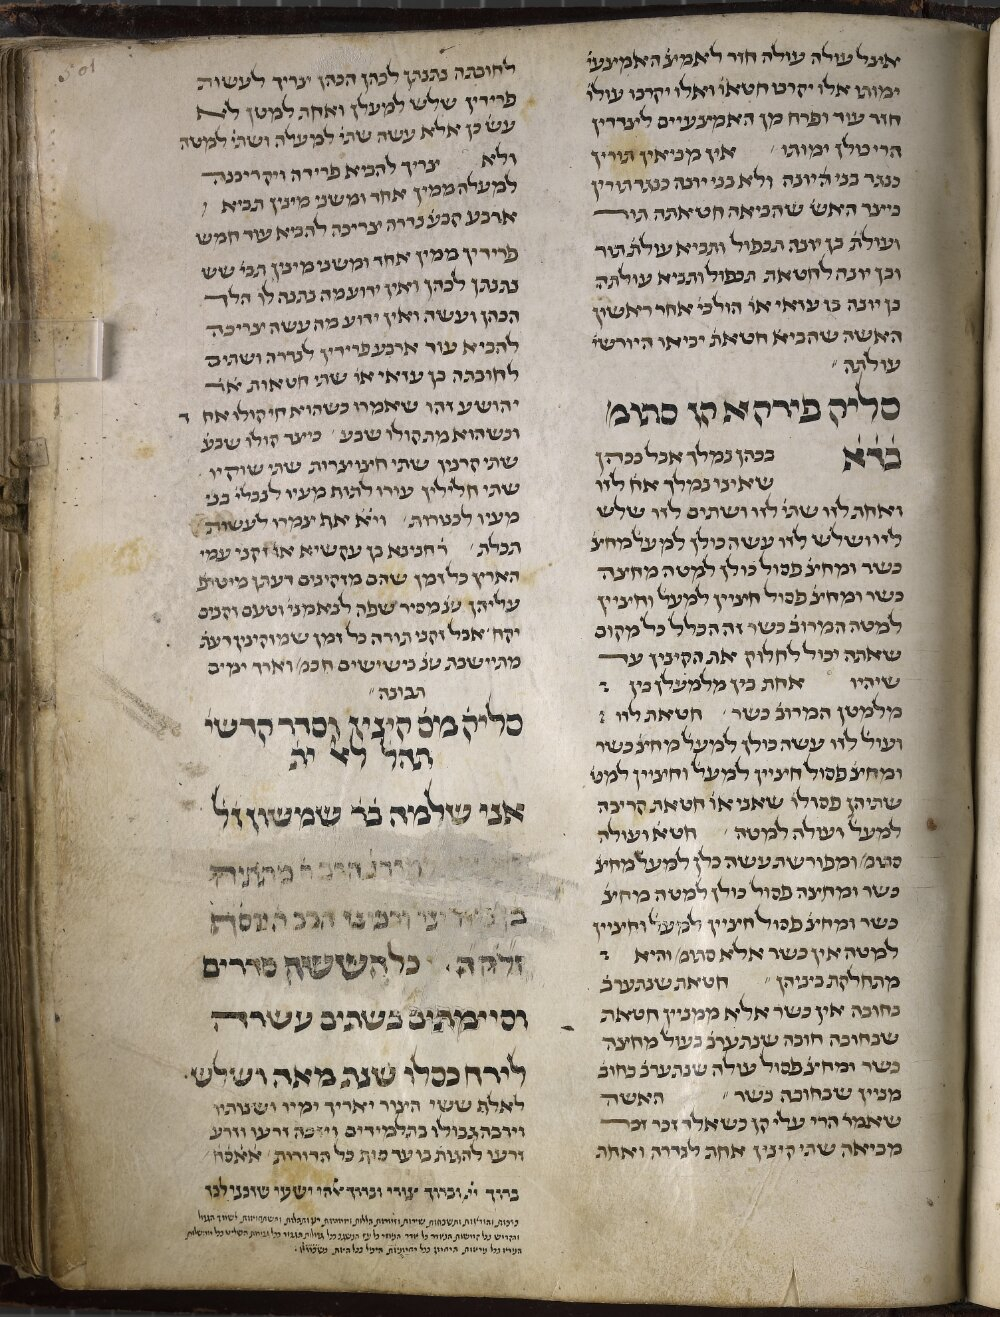 אוכל עולה עולה חזר לאמיצ האמיצעי
ימותו אלו יקרבו חטאו ואלו יקרבו עולו
חזר עוד ופרח מן האמיצעיים לצדדין
הרי כולן ימותו אין מביאין תורין
כנגד בני היונה ולא בני יונה כנגד תורין
כיצד האש שהביאה חטאתה תור
ועולת בן יונה תכפול ותביא עולת תור
ובן יונה לחטאת תכפול ותביא עולתה
בן יונה בן עזאי או הולכי אחר ראשון
האשה שהביא חטאת יביאו היורשי
עולתה
סליק פירקא קן סתומ
בדא בכהן נמלך אבל בכהן
שאינו נמלך אח לזו
ואחת לזו שתי לזו ושתים לזו שלש
לזו ושלש לזו עשה כולן למעל מחיצ
כשר ומחיצ פסול כולן למטה מחיצה
כשר ומחיצ פסול חיציין למעל וחיציין
למטה המרוב כשר זה הכלל כל מקום
שאתה יכול לחלוק את הקינין עד
שיהיו אחת בין מלמעלן בין
מלמטן המרוב כשר חטאת לזו
ועול לזו עשה כולן למעל מחיצ כשר
ומחיצ פסול חיציין למעל וחיציין למט
שתיהן פסולו שאני או חטאת קריבה
למעל ועולה למטה חטא ועולה
סתומ ומפורשת עשה כלן למעל מחיצ
כשר ומחיצה פסול כולן למטה מחיצ
כשר ומחיצ פסול חיציין למעל וחיציין
למטה אין כשר אלא סתומ והיא
מתחלקת ביניהן חטאת שנתערב
בחובה אין כשר אלא ממניין חטאת
שבחובה חובה שנתערב בעול מחיצה
כשר ומחיצ פסול עולה שנתערב בחוב
מניין שבחובה כשר האשה
שאמר הרי עלי קן כשאלד זכר זכר
מביאה שתי קינין אחת לנדרה ואחת
לחובתה נתנתן לכהן הכהן צריך לעשות
פרידין שלש למעלן ואחת למטן לא
עש כן אלא עשה שתי למעלה ושתי למטה
ולא צריך להביא פרידה ויקריבנה
למעלה ממין אחד ומשני מינין תביא
ארבע קבע נדרה צריכה להביא עוד חמש
פרידין ממין אחד ומשני מינין תבי שש
נתנתן לכהן ואין ידוע מה נתנה לו הלך
הכהן ועשה ואין ידוע מה עשה צריכה
להביא עוד ארבע פרידין לנדרה ושתים
לחובתה בן עזאי או שתי חטאות א״ר
יהושע זהו שאמרו כשהוא חי קולו אח
וכשהוא מת קולו שבע כיצד קולו שבע
שתי קרניו שתי חצוצרות שתי שוקיו
שתי חלילין עורו לתוף מעיו לנבלי בני
מעיו לכנורות וי״א אף צמרו לעשות
תכלת ר חנינא בן עקשיא או זקני עמי
הארץ כל זמן שהם מזקינים דעתן מיטרפ
עליהן שנ מסיר שפה לנאמני וטעם זקנים
יקח אבל זקני תורה כל זמן שמזקינין דעת
מתיישבת שנ בישישים חכמ ואורך ימים
תבונה
סליק מס קינין וסדר קדשי
תהל לא יה
אני שלמה בר שמשון זל
הרב ר מתתיה
ב הרב
כל הששה סדרים
וסיימתים בשתים עשרה
לירח כסלו שנת מאה ושלש
לאלף ששי היוצר יאריך ימיו ושנותיו
וירבה גבולו בתלמידים וזרעו וזרע
זרעו להגות בו עד סוף כל הדורות אאסח
ברוך יי וברוך צורי וברוך אלהי ישעי שזכני לכך